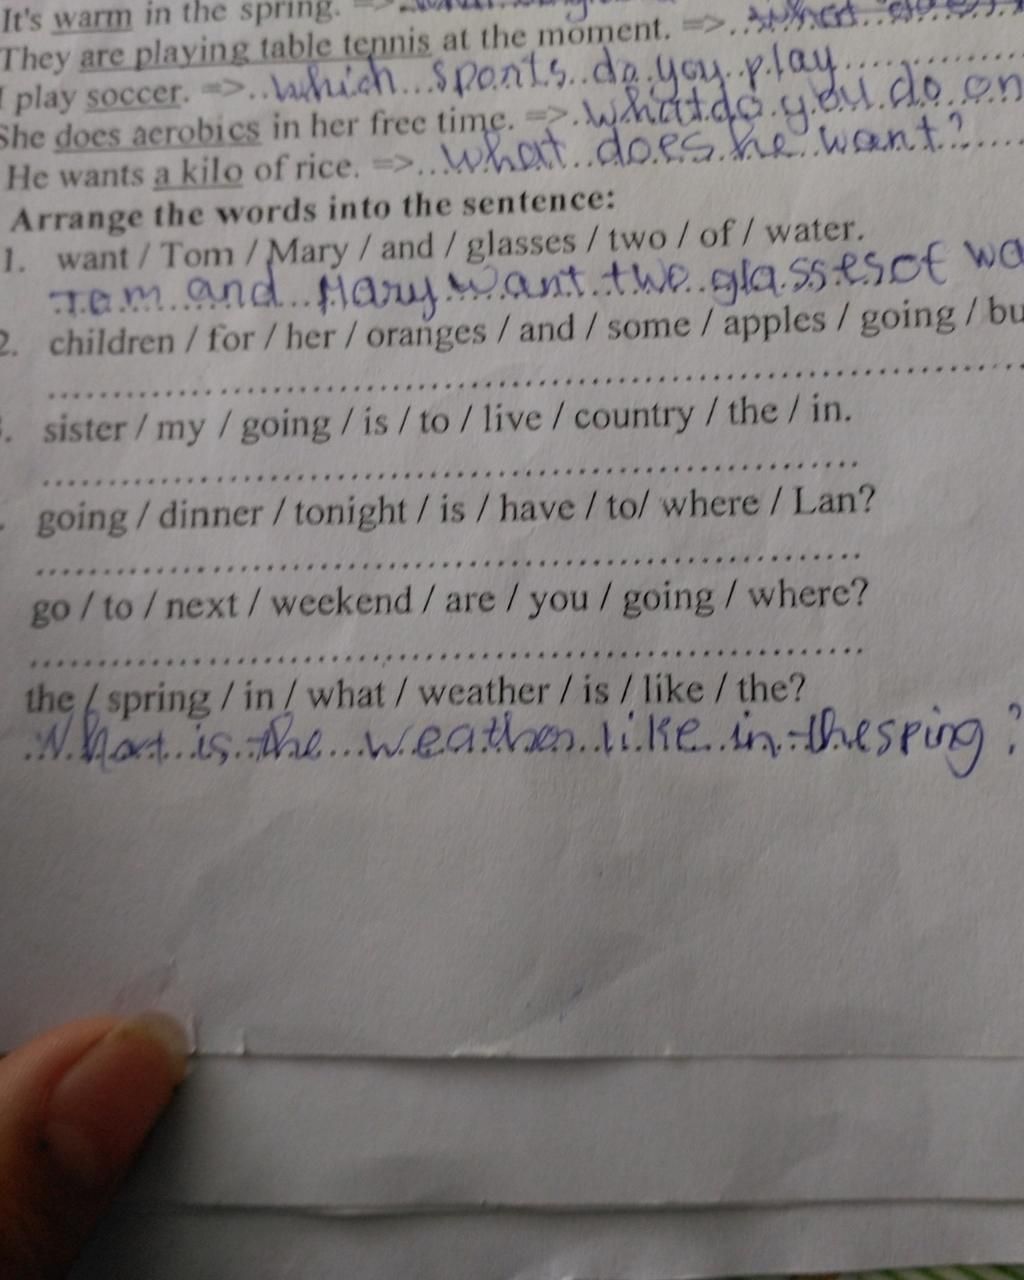 It's warm in the spring. =>
They are playing table tennis at the moment. => what
I play soccer. => which sports do you play
She does aerobics in her free time. => what do you do on
He wants a kilo of rice. => what does he want?
Arrange the words into the sentence:
1. want / Tom / Mary / and / glasses / two / of / water.
Tom and Mary want two glasses of wa
2. children / for / her / oranges / and / some / apples / going / bu
. sister / my / going / is / to / live / country / the / in.
going / dinner / tonight / is / have / to/ where / Lan?
go / to / next / weekend / are / you / going / where?
the / spring / in / what / weather / is / like / the?
What is the weather like in the sping ?